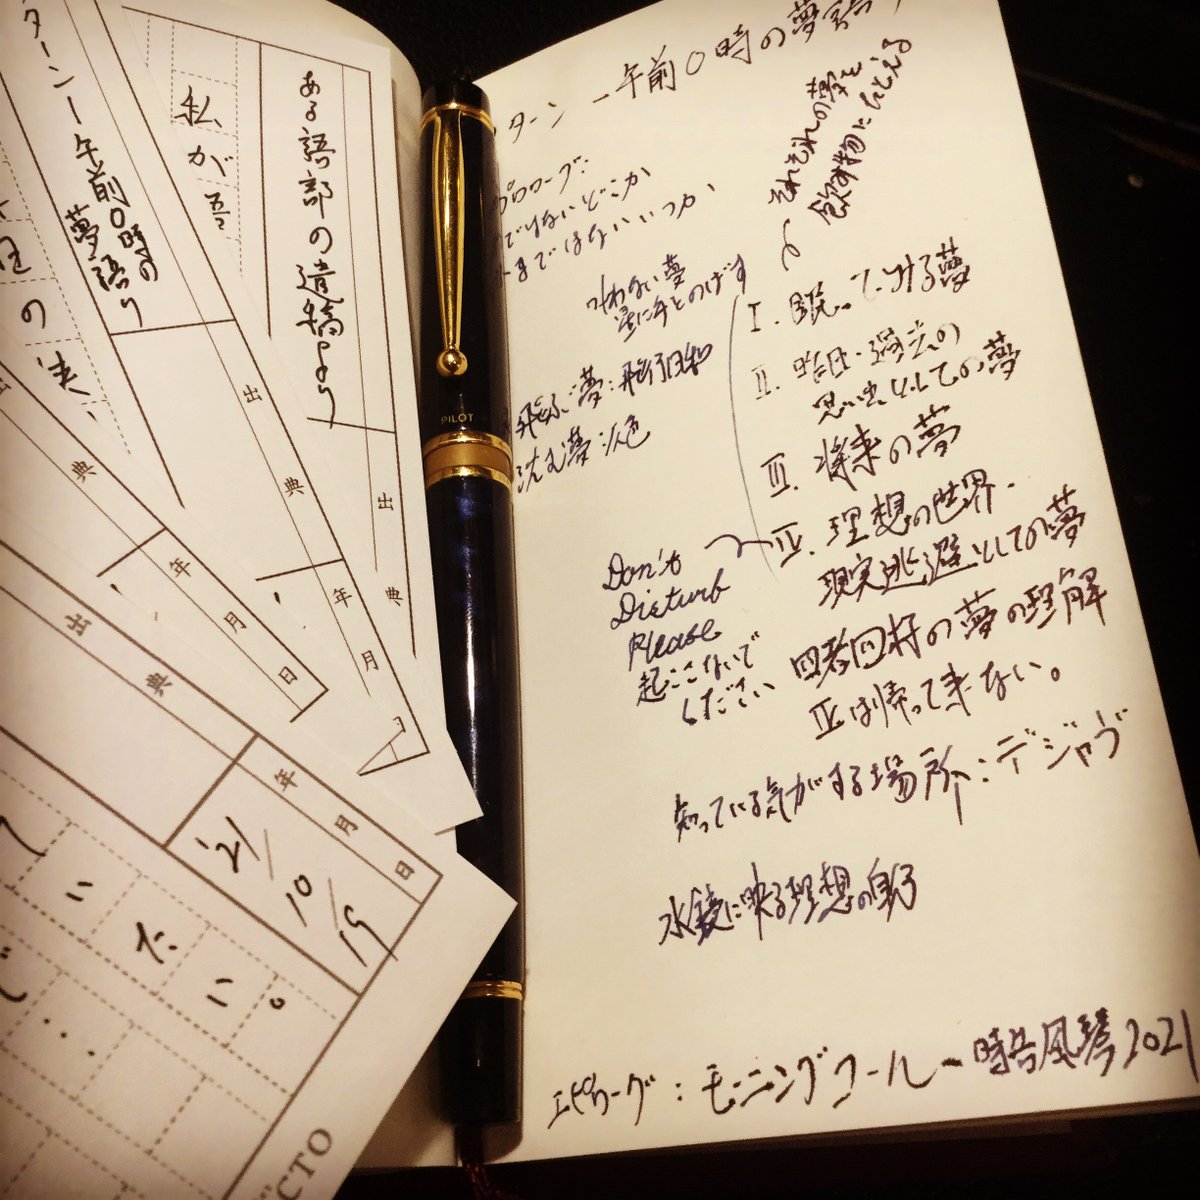 ターン―午前0時の夢語り
プロローグ:
ではないどこか
今ではないいつか
それぞれの夢を
飲み物にたとえる
叶わない夢
星に手をのばす
飛ぶ夢:飛行日和
沈む夢:
I. 眠ってみる夢
II. 昨日・過去の
思い出としての夢
III. 将来の夢
IV. 理想の世界.
現実逃避としての夢
Don't
Disturb
Please
起こさないで
ください
四者四様の夢の理解
IVは帰って来ない。
知っている気がする場所:デジャヴ
水鏡に映る理想の自分
エピローグ:モーニングコール―時告風琴2021
PILOT
ある語部の遺稿より
私が吾
出典
年月
ターン―午前0時の
夢語り
出典
年月日
出典
年月日
'21/10/19
CTO